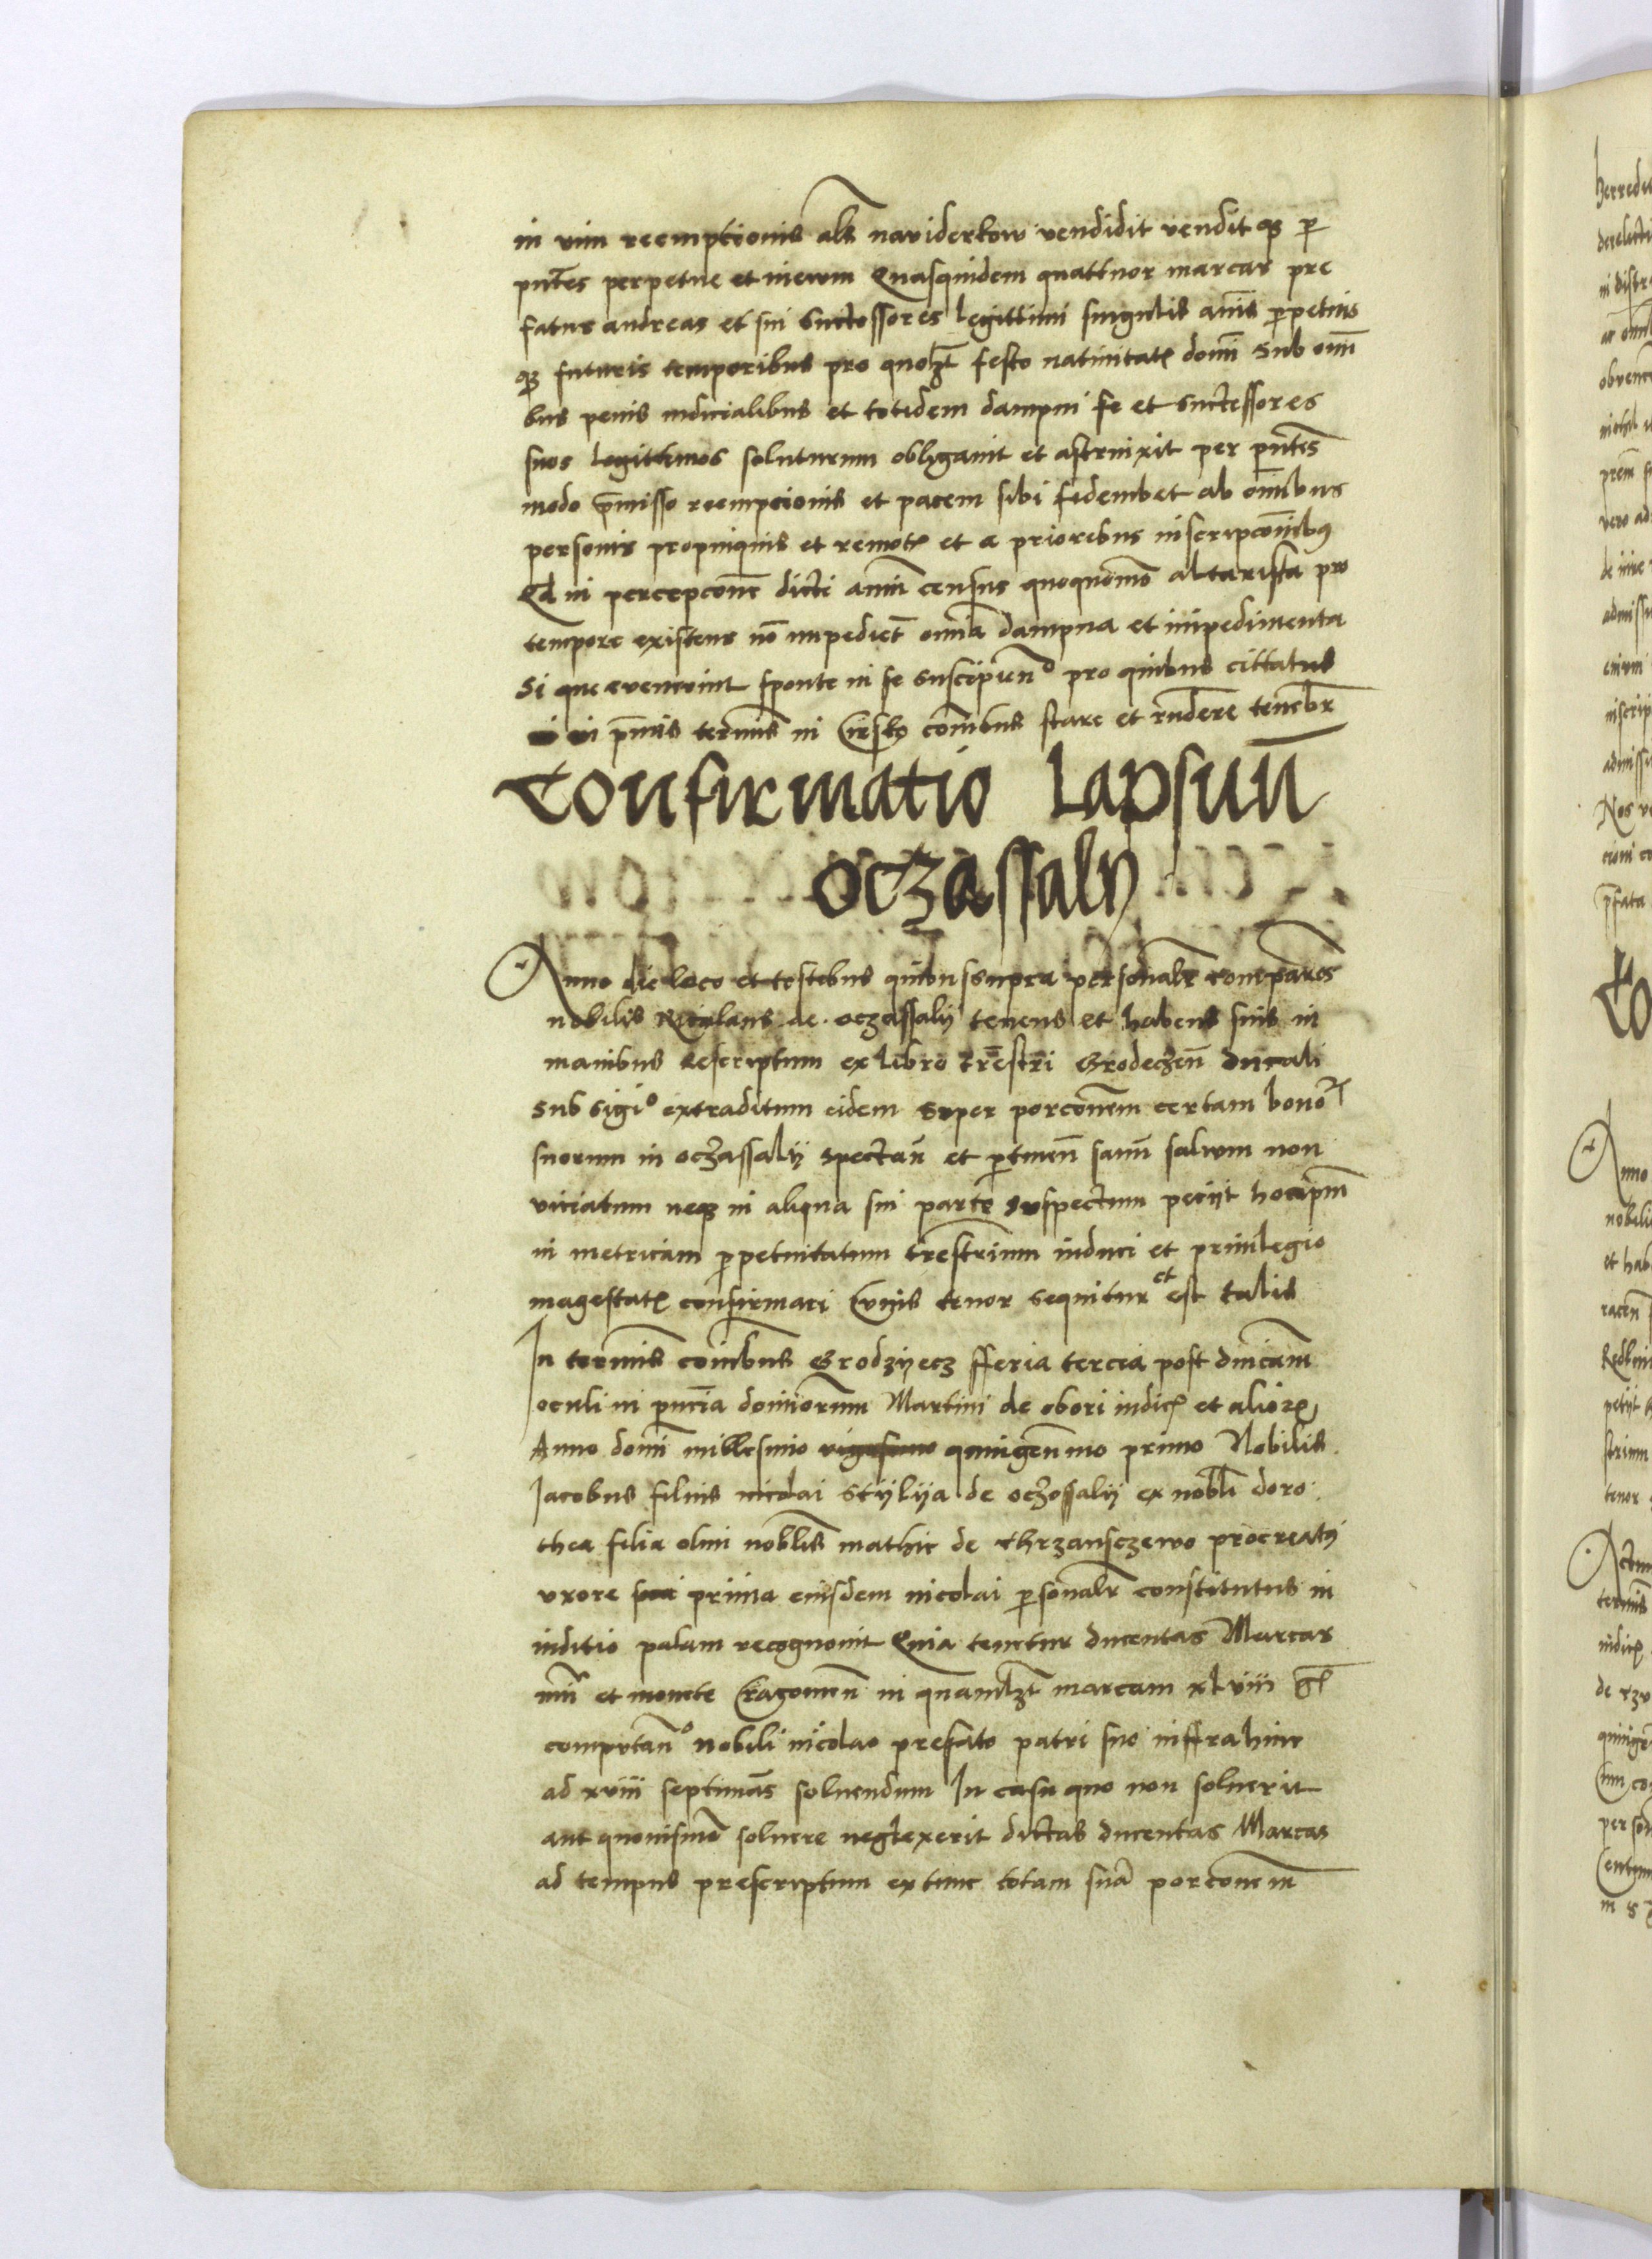 in vim reemptionis als naviderkow vendidit vendit qȝ p
pntes perpetue et in ewm Quasquidem quattuor marcas pre
fatus andreas et sui Successores legittimi singulis annis ppetuis
qȝ futuris temporibus pro quolȝt festo nativitatꝭ domi Sub omi
bus penis iudicialibus et totidem dampni se et Successores
suos legittimos soluturum obligavit et astrinxit per pntes
modo pmisso reempcionis et pacem sibi fedembet ab omibus
personis propinquis et remotꝭ et a prioribus inscripcoibꝫ
Qd in percepcone dicti anui census quoquomo altarista pro
tempore existens no impediet omia dampna et impedimenta
Si que evenerint sponte in se suscipien° pro quibus cittatus
in pmis termis in Cirsko comibus stare et rndere tenebr
Confirmatio Lapsuu
oczassaly
Anno die loco et testibus quibus supra personalr comparens
nobilis Nicolaus de oczassalij tenens et habens suis in
manibus Rescriptum ex libro trestri Grodeczen ducali
Sub sigi° extraditum eidem Super porconem certam bono
suorum in oczassalij Spectan et ptinen sanu salvum non
viciatum neqȝ in aliqua sui parte suspectum petijt hocipm
in metricam ppetuitatum trestrium induci et privilegio
magestatꝭ confirmari Cuius tenor sequitur et est talis
In termis comibus Grodzijecz fferia tercia post dnicam
oculi in pncia domiorum Martini de obori iudicꝭ et alioꝝ
Anno domi millesimo quingenmo primo Nobilis
Jacobus filius nicolai Stijlija de oczossalij ex nobli doro
thea filia olim noblis mathie de Chrzansczewo procreaty
uxore prima eiusdem nicolai psonalr constitutus in
iuditio palam recognovit Quia tenetur ducentas Marcas
et monete in quamlȝt marcam xlviii gꝭ
computan° Nobili nicolao prefato patri suo inffrahinc
ad xviii septimas solvendum In casu quo non solverit
aut quovismo solvere neglexerit dictas ducentas Marcas
ad tempus prescriptum extunc totam sua porconem